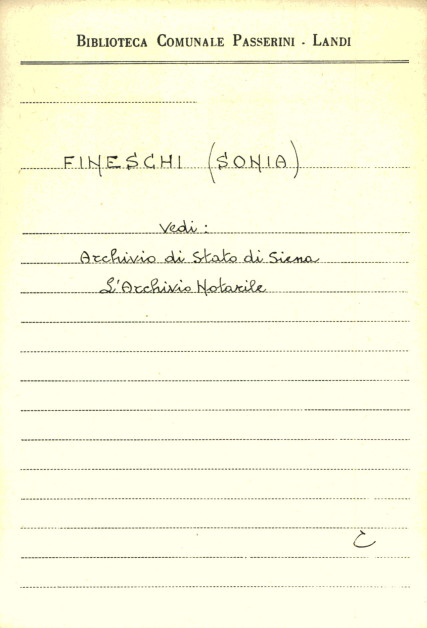 BIBLIOTECA COMUNALE PASSERINI - LANDI
FINESCHI (SONIA)
Vedi:
Archivio di Stato di Siena
L'Archivio Notarile